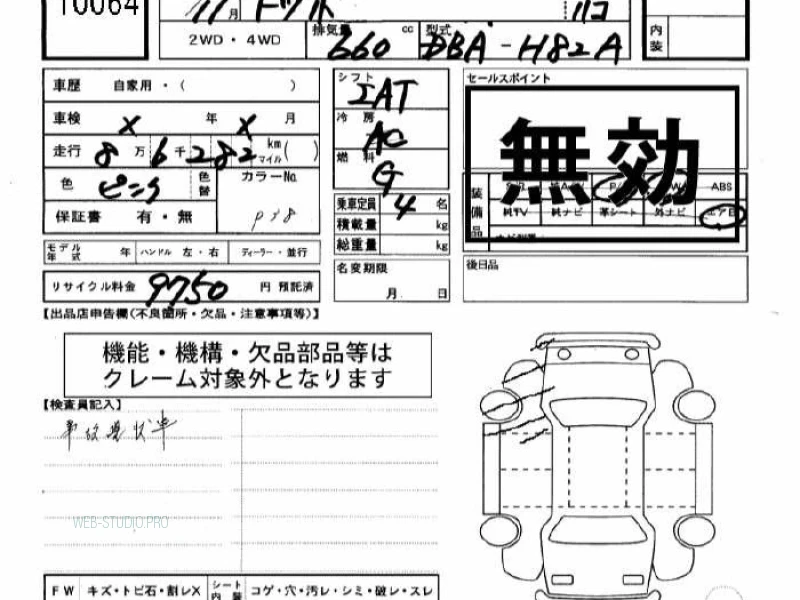 10064
11月
2WD・4WD
排気量 660 cc
型式 DBA-H82A
内装
車歴 自家用・( )
車検 X 年 X 月
走行 8万6千282 km マイル ( )
色 ピンク 色替 カラーNo. P28
保証書 有・無
モデル年式 年 ハンドル 左・右 ディーラー・並行
リサイクル料金 9750 円 預託済
シフト IAT
冷房 AC
燃料 G
乗車定員 4 名
積載量 kg
総重量 kg
名変期限
月 日
セールスポイント
無効
装備品 ABS
純TV 純ナビ 革シート 外ナビ エアB
後日品
【出品店申告欄(不良箇所・欠品・注意事項等)】
機能・機構・欠品部品等は
クレーム対象外となります
【検査員記入】
事故現状車
WEB-STUDIO.PRO
FW キズ・トビ石・割レX シート内装 コゲ・穴・汚レ・シミ・破レ・スレ